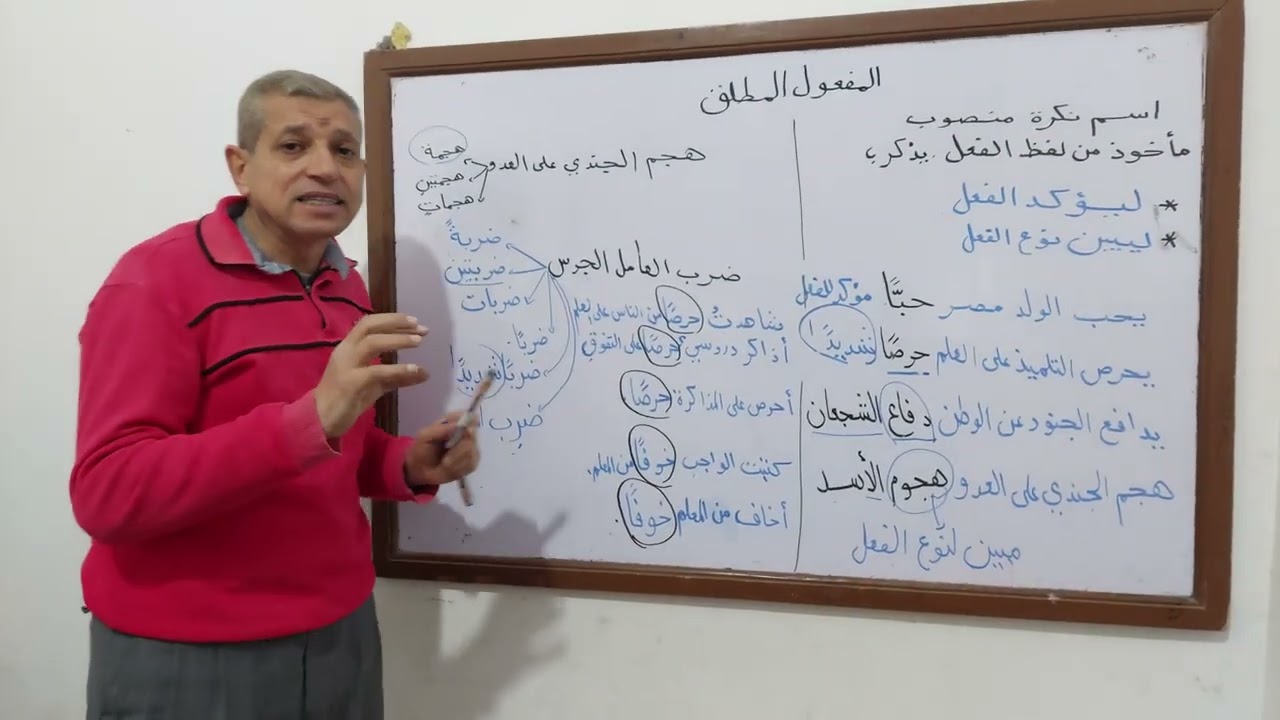 المفعول المطلق
اسم نكرة منصوب
مأخوذ من لفظ الفعل يذكر
* ليؤكد الفعل
* ليبين نوع الفعل
يحب الولد مصر حبًّا مؤكد للفعل
يحرص التلميذ على العلم حرصًا شديدًا
يدافع الجنود عن الوطن دفاع الشجعان
هجم الجندي على العدو هجوم الأسد
مبين لنوع الفعل
هجم الجندي على العدو
هجمة
هجمتين
هجمات
ضرب العامل الجرس
ضربةً
ضربتين
ضربات
ضربًا
ضربًا شديدًا
ضرب
شاهدتُ حرصًا من الناس على العلم
أذاكر دروسي حرصًا على التفوق
أحرص على المذاكرة حرصًا.
كتبت الواجب خوفًا من المعلم.
أخاف من المعلم خوفًا.